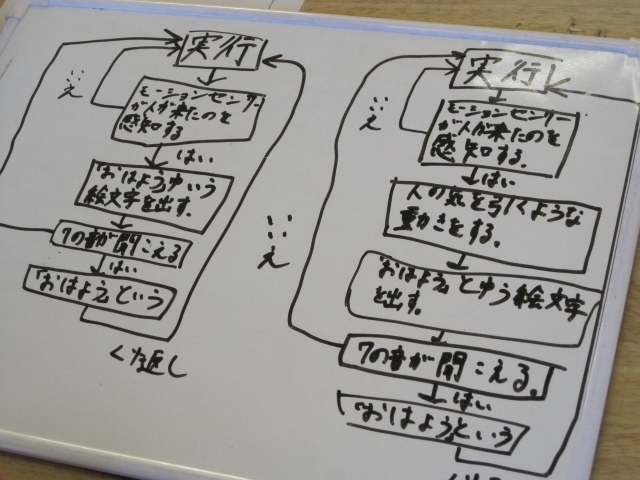 実行
いいえ
モーションセンサー
が人が来たのを
感知する
はい
「おはよう」ゆいう
絵文字を出す。
7の音が聞こえる
はい
「おはよう」という
くり返し
実行
いいえ
モーションセンサー
が人が来たのを
感知する。
はい
人の気を引くような
動きをする。
いいえ
「おはよう」とゆう絵文字
を出す。
7の音が聞こえる。
はい
「おはよう」という